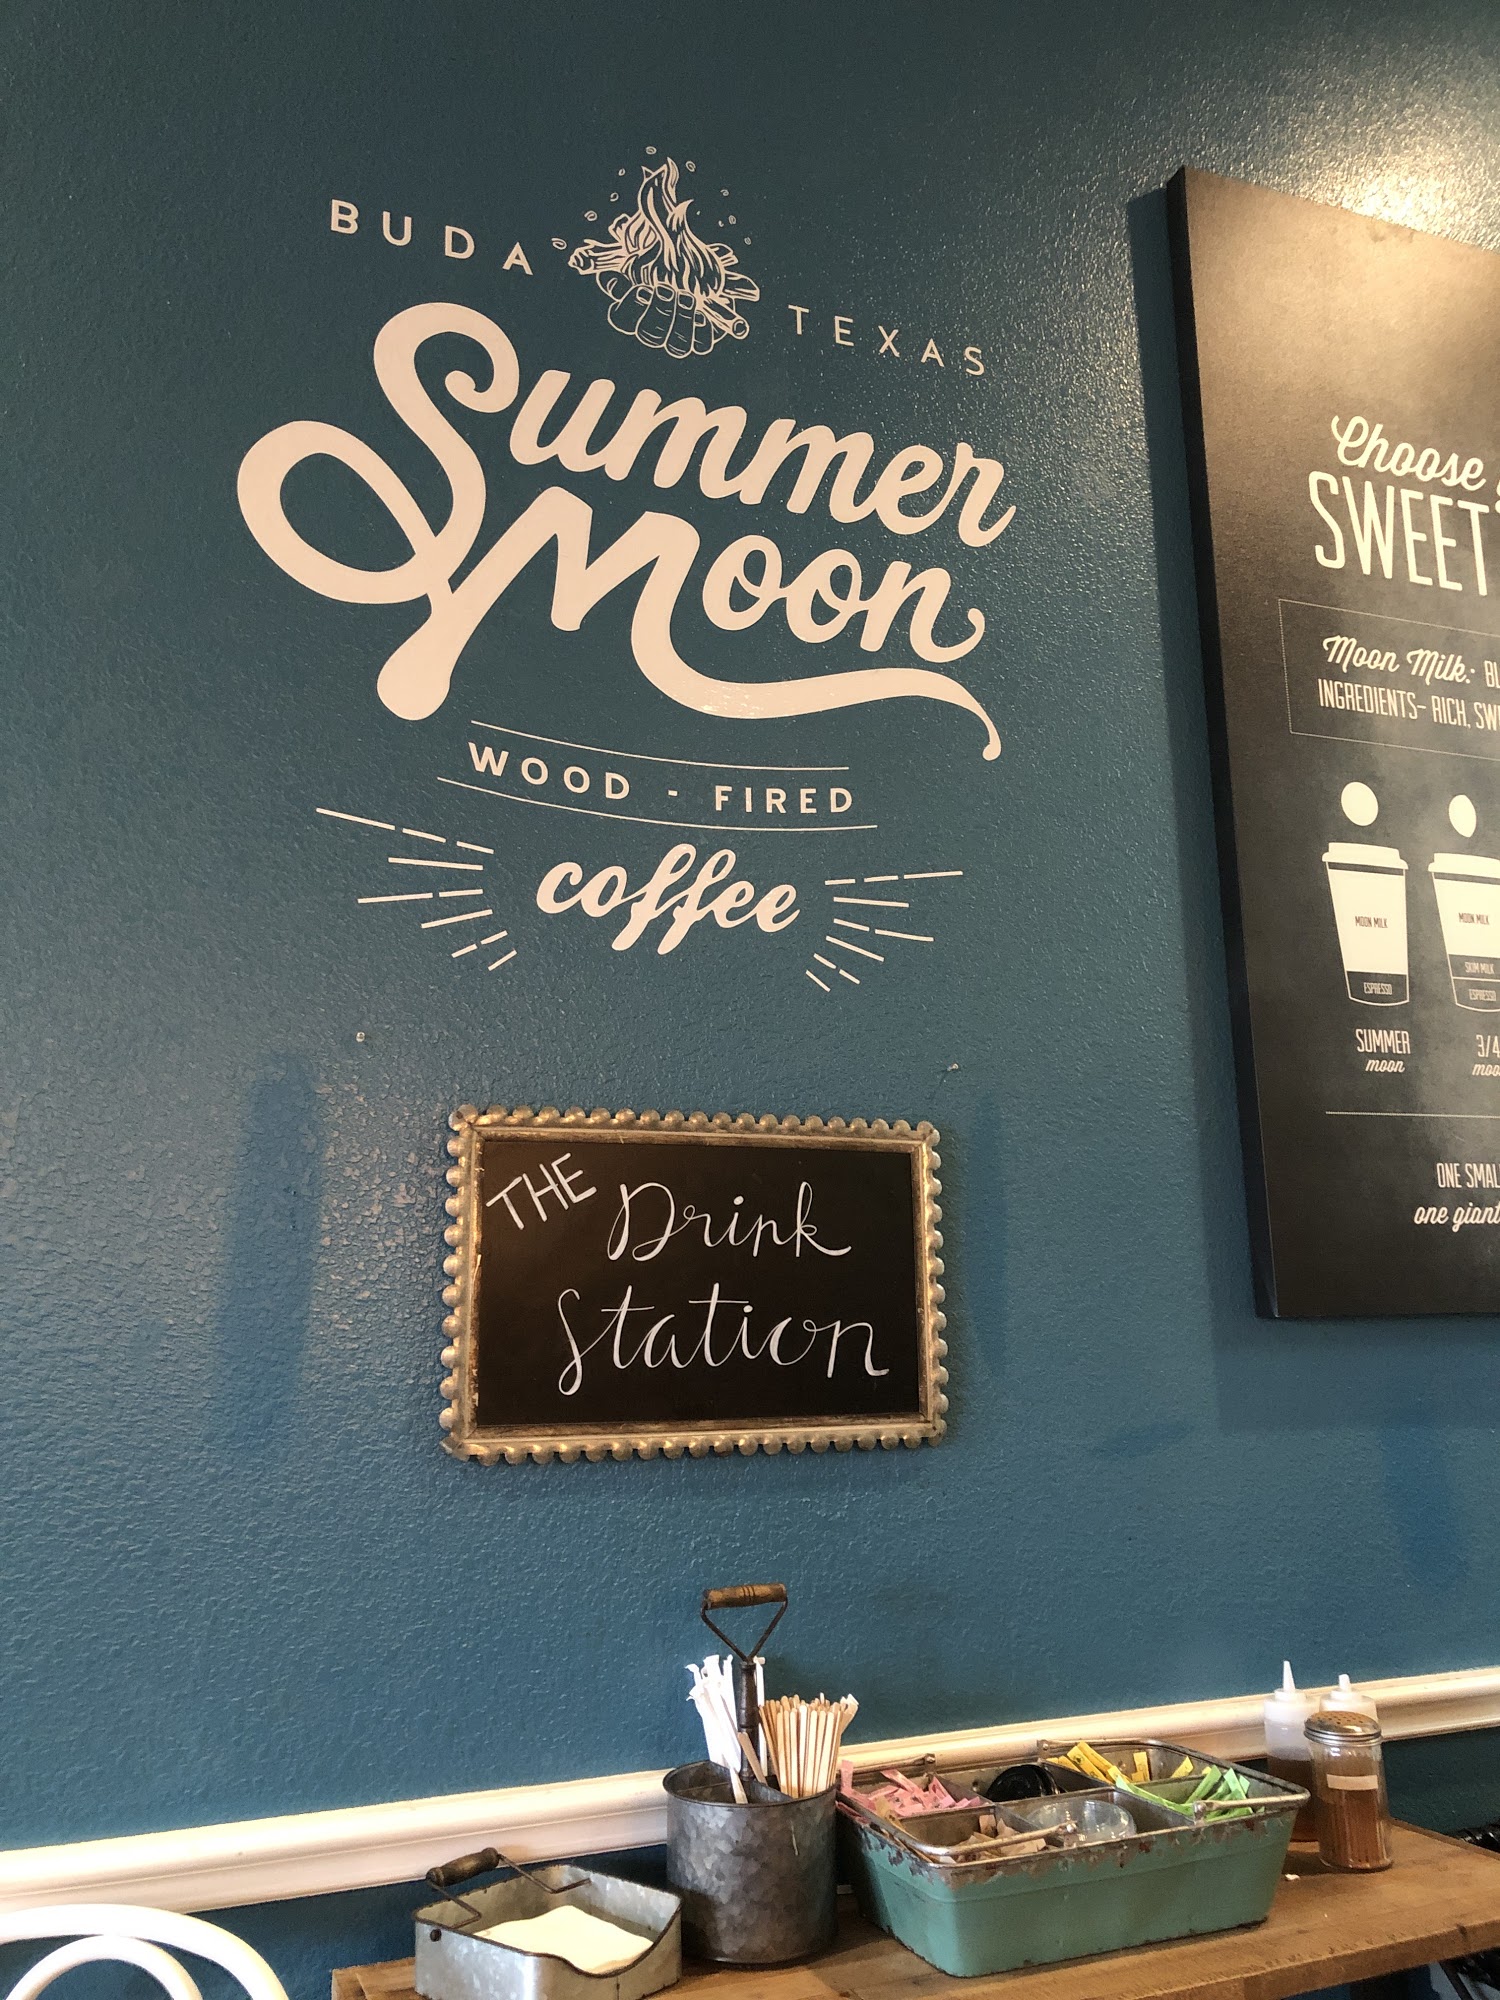 BUDA TEXAS
Summer
Moon
WOOD - FIRED
coffee
THE Drink
Station
Choose
SWEET
Moon Milk:
INGREDIENTS- RICH,
MOON MILK
ESPRESSO
SUMMER
moon
MOON MILK
SKIM MILK
ESPRESSO
3/4
ONE
one giant